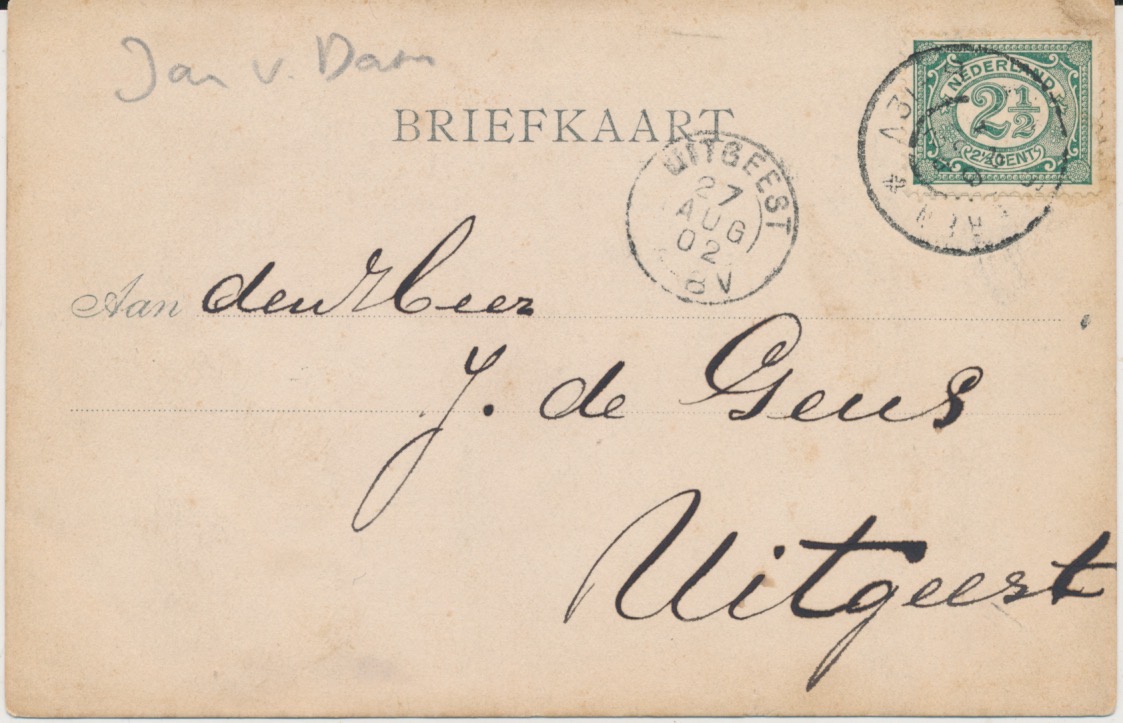 Jan v. Dam
BRIEFKAART
NEDERLAND
2½
2½ CENT
UITGEEST
27
AUG
02
8V
Aan den Heer
J. de Geus
Uitgeest